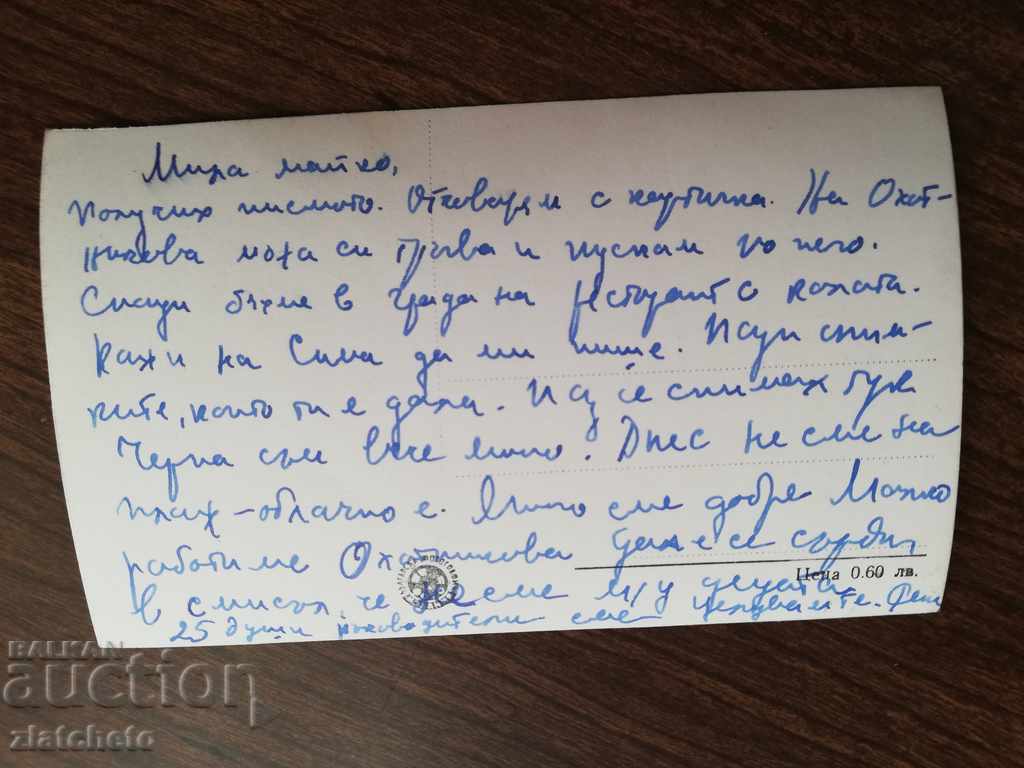 Мила майко,
получих писмото. Отговарям с картичка. На Охот-
никова мъжа си тръгва и пускам по него.
Снощи бяхме в града на ресторант с колата.
Кажи на Сима да ми пише. Пази сним-
ките, които ти е дала. И аз се снимах тук
Черна съм вече много. Днес не сме на
плаж - облачно е. Много сме добре Малко
работиме Охотникова даже се сърди,
в смисъл, че не сме м/у децата
25 души ръководители сме Целувам те.
Цена 0.60 лв.
BALKAN
auction
zlatcheto